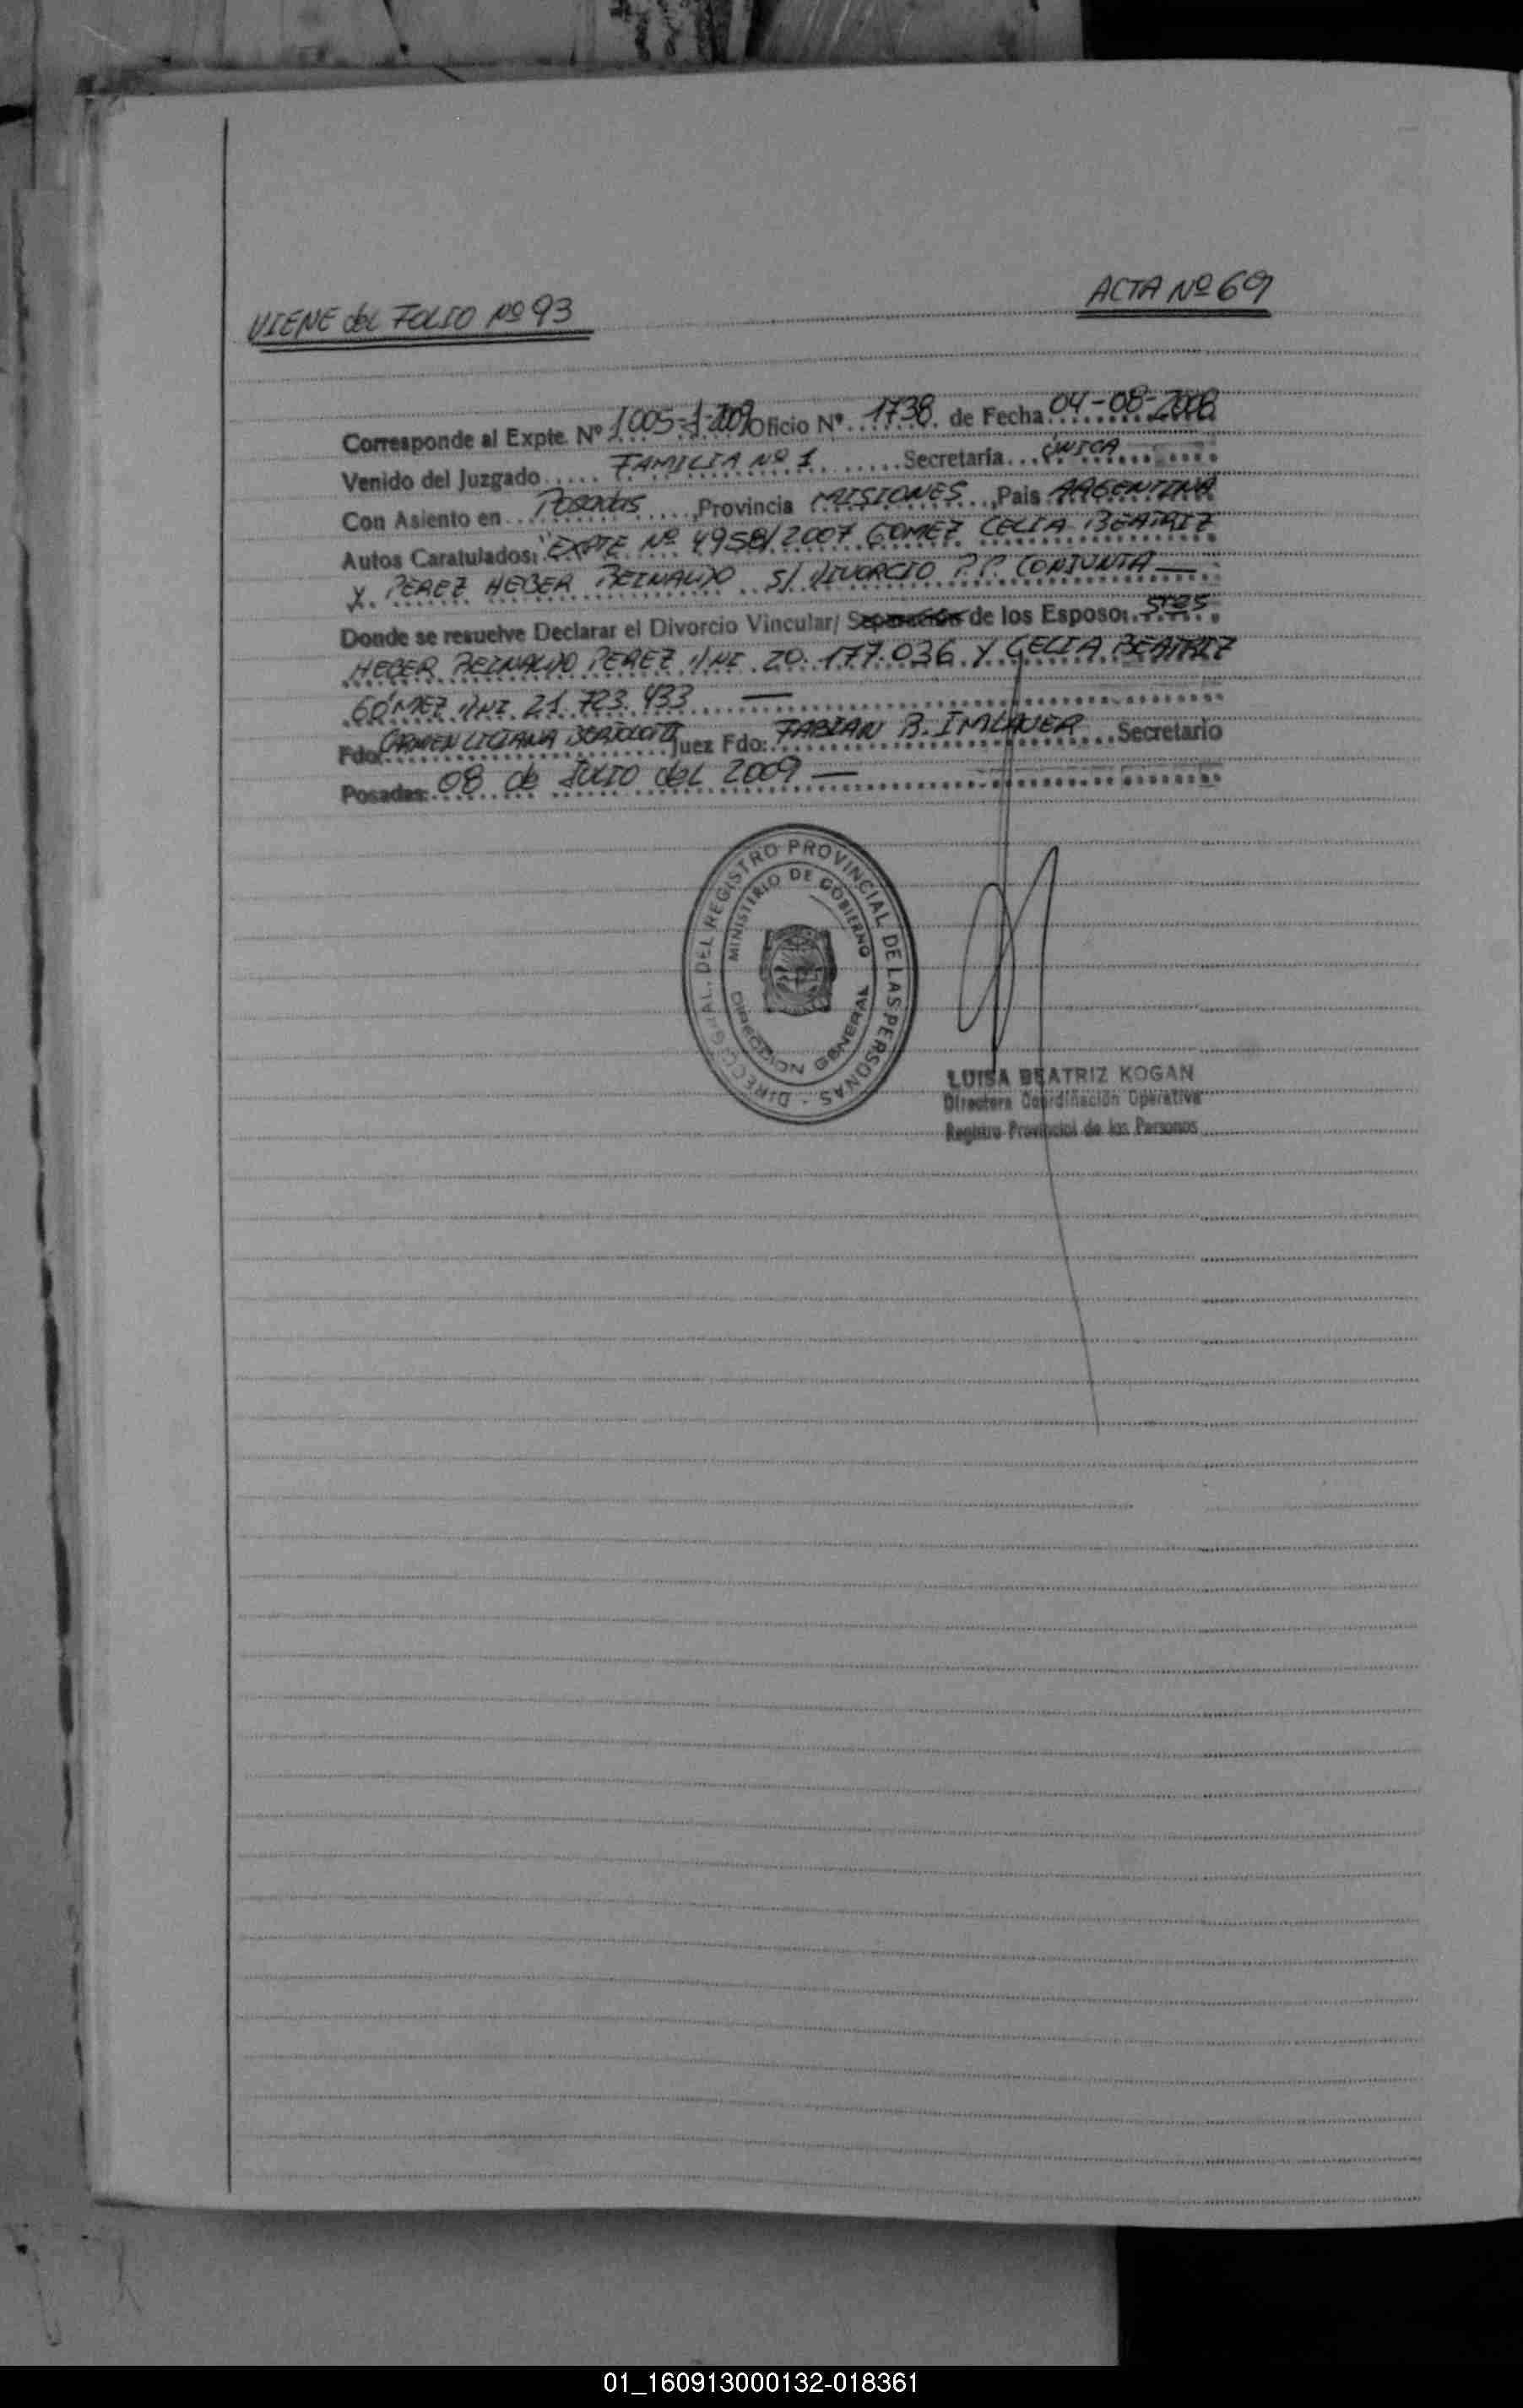 VIENE del FOLIO Nº 93
ACTA Nº 69
Corresponde al Expte. Nº 1005-1-2009 Oficio Nº 1738 de Fecha 04-08-2008
Venido del Juzgado FAMILIA Nº 1 Secretaría ÚNICA
Con Asiento en Posadas, Provincia MISIONES, Pais ARGENTINA
Autos Caratulados: "EXPTE Nº 4958/2007 GOMEZ CELIA BEATRIZ
Y PEREZ HEBER REINALDO S/ DIVORCIO P.P. CONJUNTA —
Donde se resuelve Declarar el Divorcio Vincular/ Separación de los Esposos: Sres
HEBER REINALDO PEREZ DNI 20.177.036 Y CELIA BEATRIZ
GÓMEZ DNI 21.723.433 —
Fdo: CARMEN LILIANA Juez Fdo: FABIAN B. Secretario
Posadas: 08 de JULIO del 2009 —
DIRECC. GRAL. DEL REGISTRO PROVINCIAL DE LAS PERSONAS
MINISTERIO DE GOBIERNO
DIRECCION GENERAL
LUISA BEATRIZ KOGAN
Directora Coordinación Operativa
Registro Provincial de las Personas
01_160913000132-018361